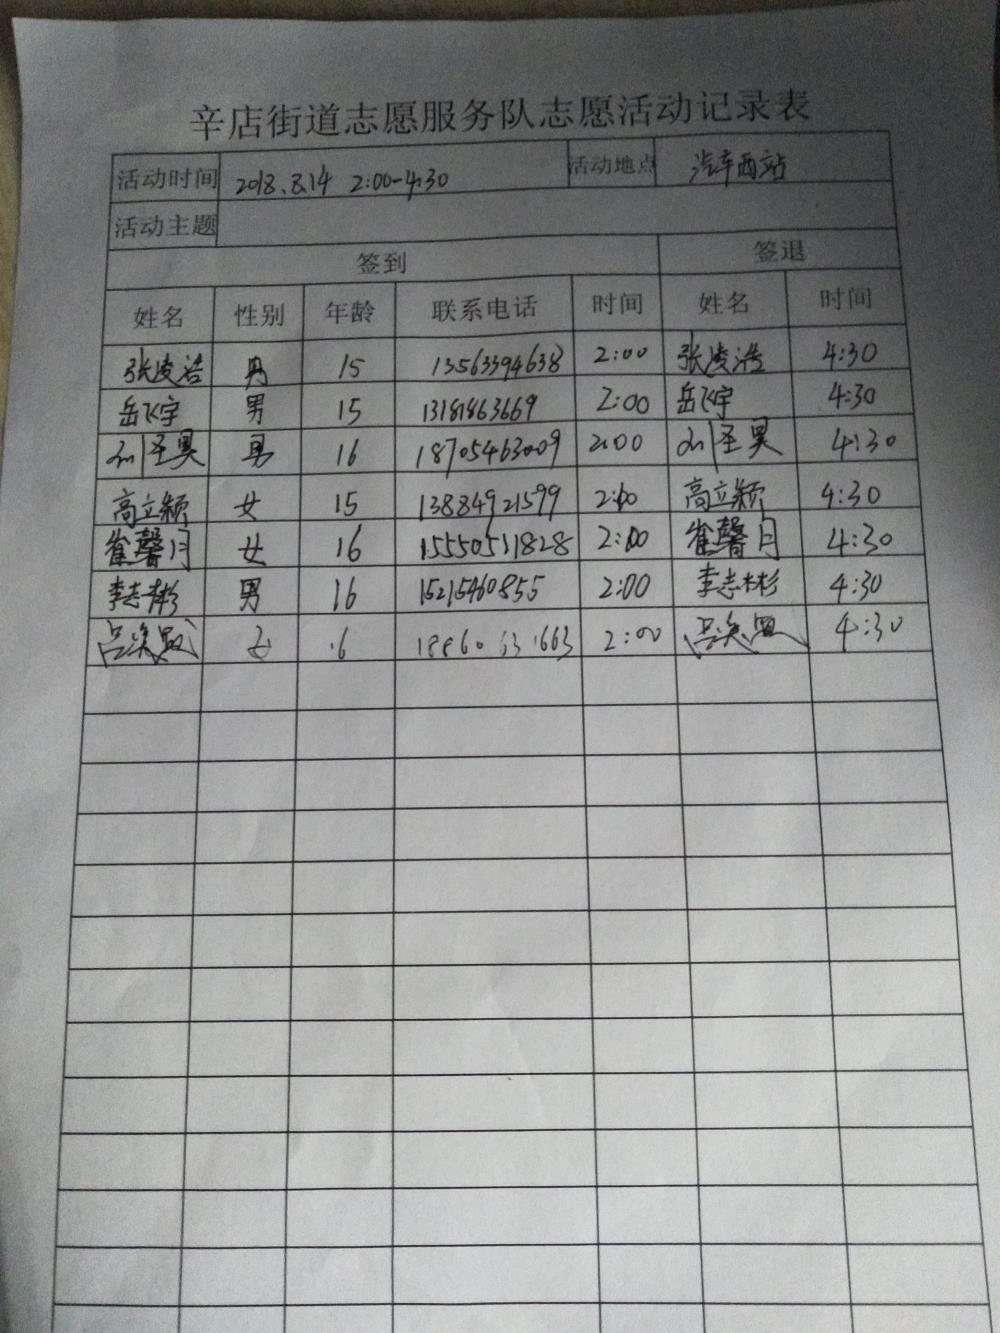 辛店街道志愿服务队志愿活动记录表
活动时间 2018.8.14 2:00-4:30 活动地点 汽车西站
活动主题
签到 签退
姓名 性别 年龄 联系电话 时间 姓名 时间
张凌浩 男 15 13563394638 2:00 张凌浩 4:30
岳飞宇 男 15 13181863669 2:00 岳飞宇 4:30
刘圣昊 男 16 18705463009 2:00 刘圣昊 4:30
高立颖 女 15 13884921599 2:00 高立颖 4:30
崔馨月 女 16 15550511828 2:00 崔馨月 4:30
李志彬 男 16 15215460855 2:00 李志彬 4:30
吕 女 2:00 吕 4:30